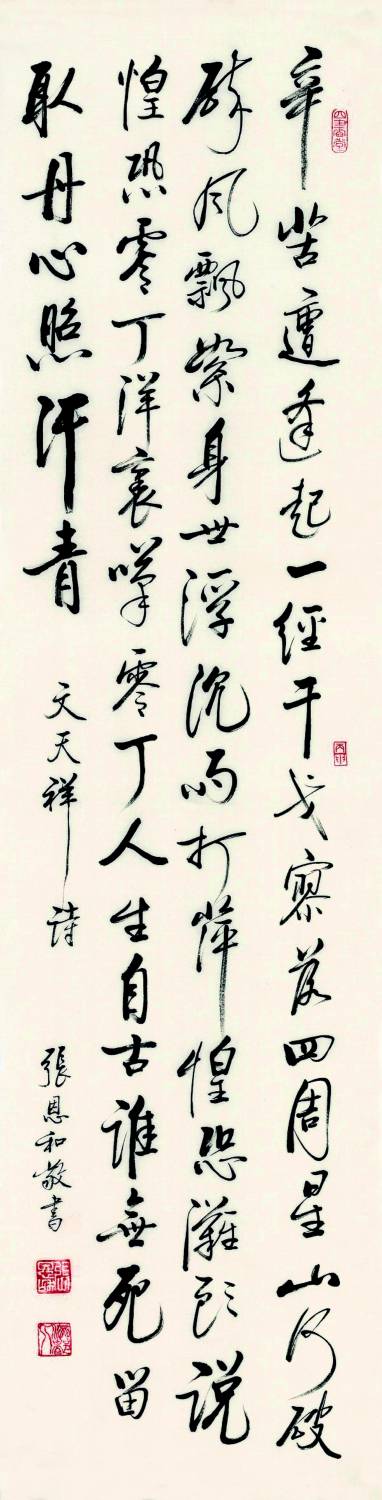 辛苦遭逢起一經干戈寥落四周星山河破
碎風飄絮身世浮沉雨打萍惶恐灘頭説
惶恐零丁洋裏嘆零丁人生自古誰無死留
取丹心照汗青
文天祥詩
張恩和敬書